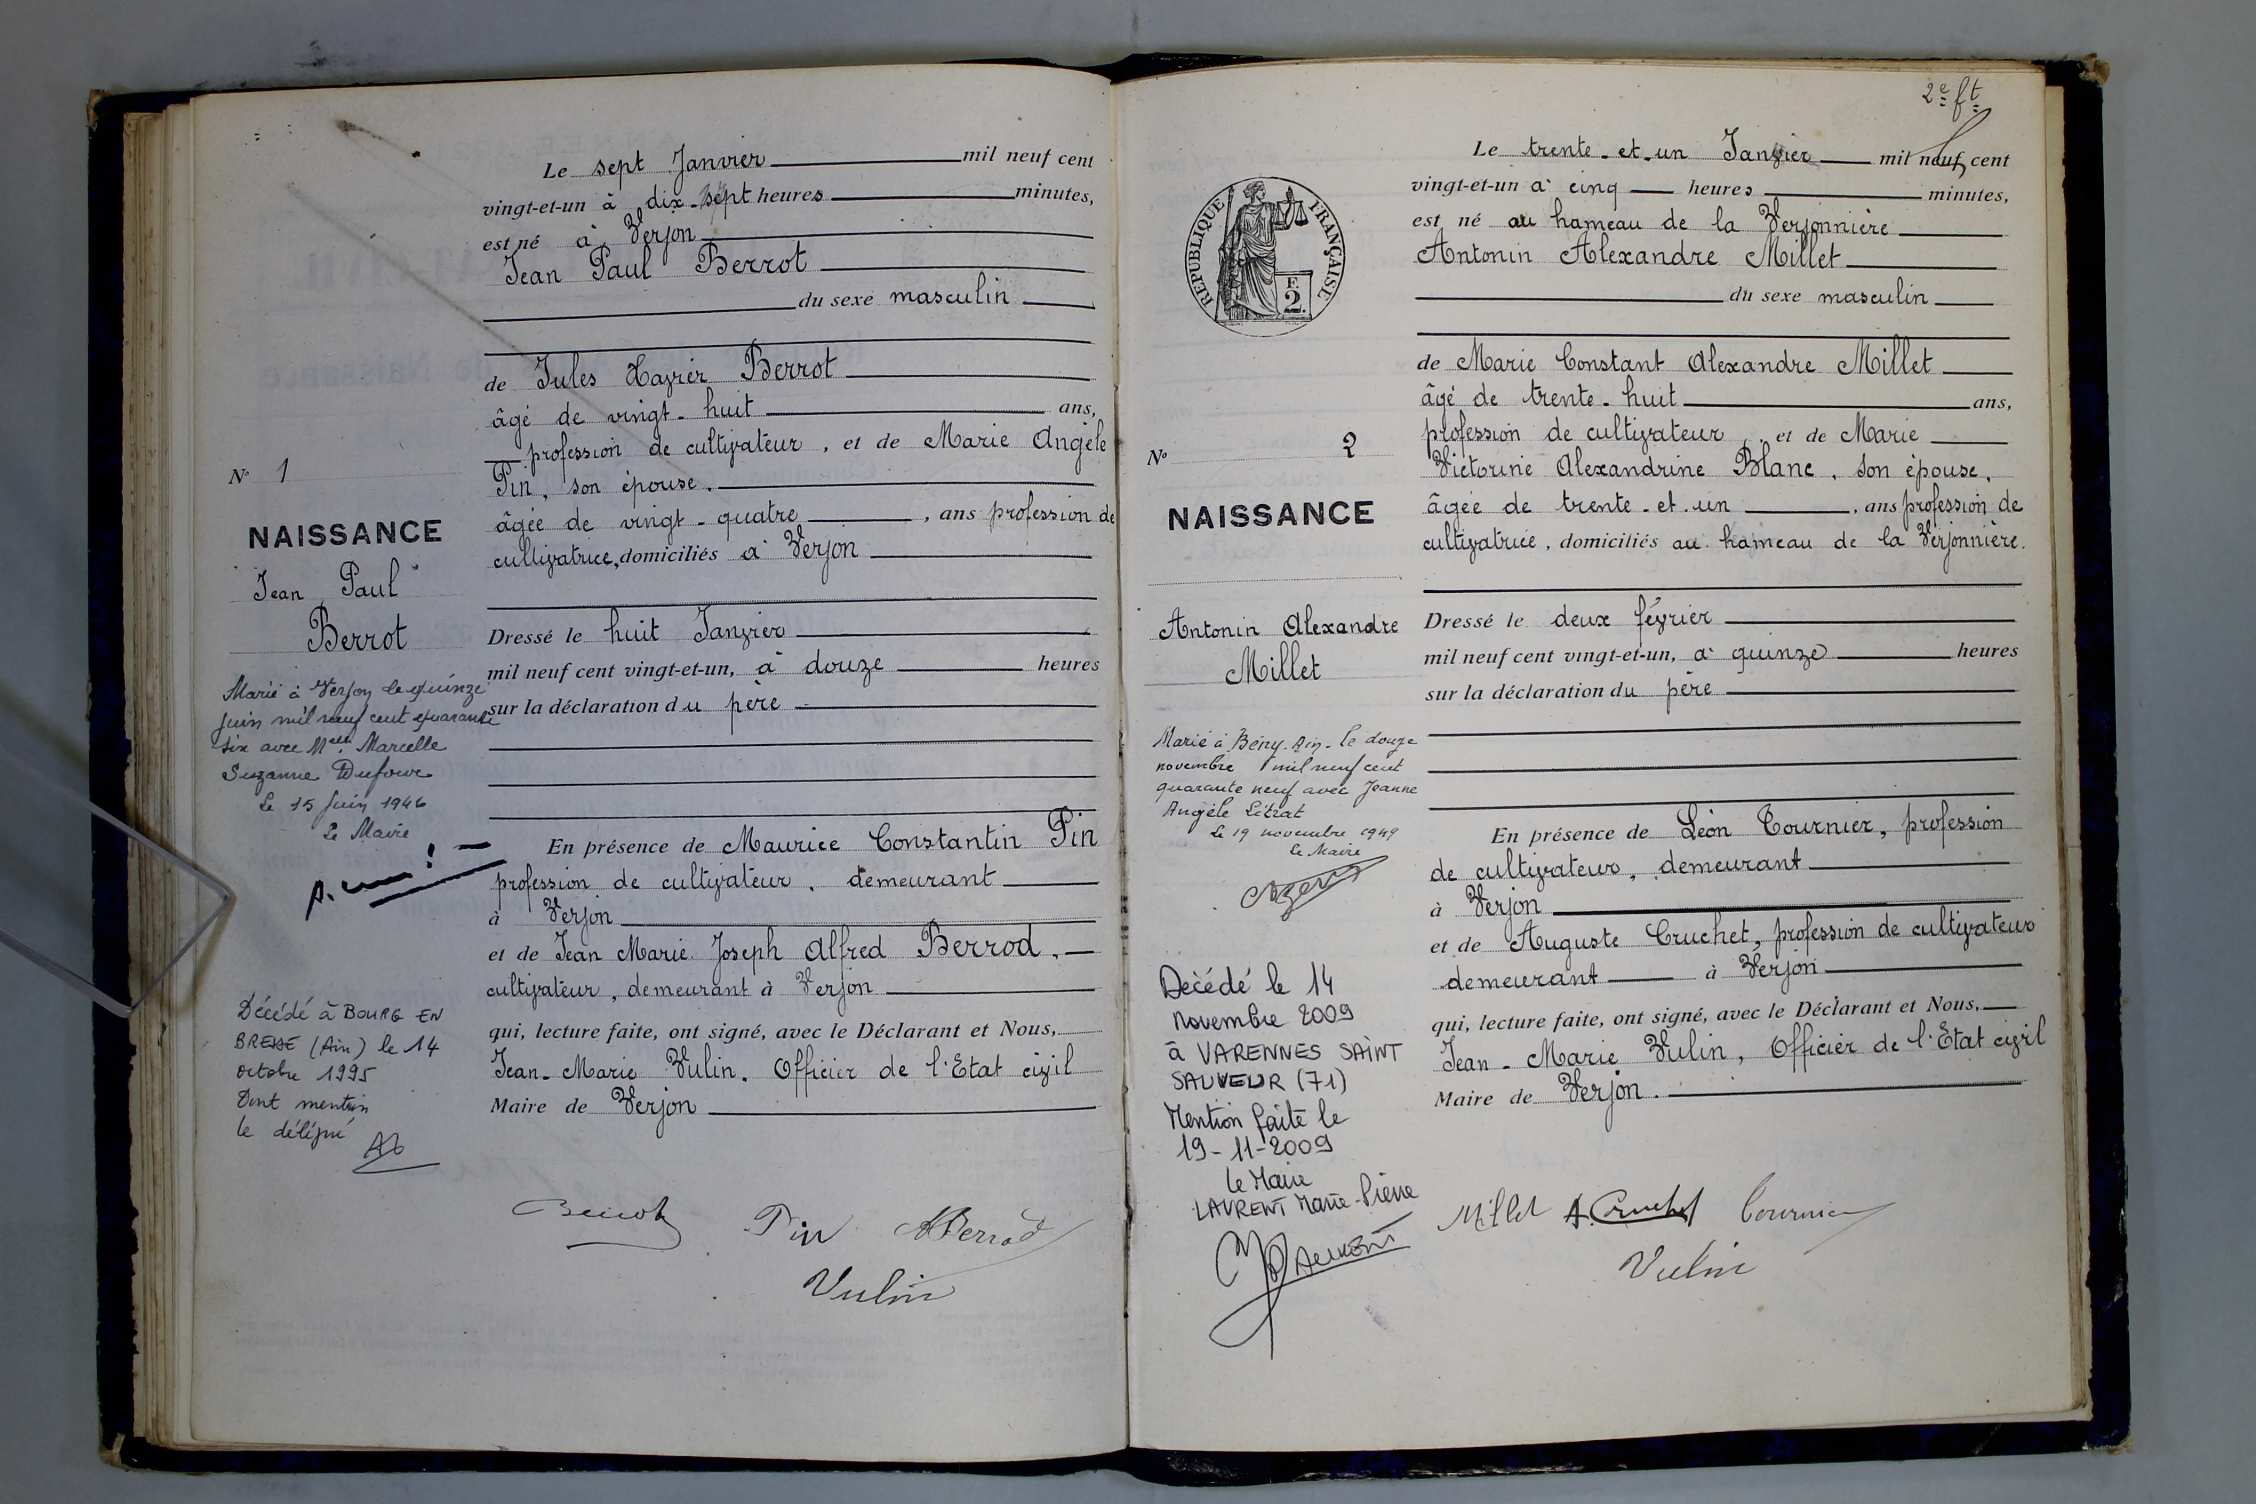 Le sept Janvier mil neuf cent
vingt-et-un à dix-sept heures minutes,
est né à Verjon
Jean Paul Berrot
du sexe masculin
de Jules Xavier Berrot
âgé de vingt-huit ans,
profession de cultivateur, et de Marie Angèle
Pin, son épouse.
âgée de vingt-quatre, ans profession de
cultivatrice, domiciliés à Verjon
Dressé le huit Janvier
mil neuf cent vingt-et-un, à douze heures
sur la déclaration du père
En présence de Maurice Constantin Pin
profession de cultivateur, demeurant
à Verjon
et de Jean Marie Joseph Alfred Berrod,
cultivateur, demeurant à Verjon
qui, lecture faite, ont signé, avec le Déclarant et Nous,
Jean-Marie Vulin. Officier de l'Etat civil
Maire de Verjon
Berrot Pin ABerrod
Vulin
N° 1
NAISSANCE
Jean Paul
Berrot
Marié à Verjon le quinze
juin mil neuf cent quarante
six avec Melle Marcelle
Suzanne Dufour
le 15 Juin 1946
Le Maire
Décédé à BOURG EN
BRESSE (Ain) le 14
octobre 1995
Dont mention
le délégué
2e ft
Le trente-et-un Janvier mil neuf cent
vingt-et-un à cinq heures minutes,
est né au hameau de la Verjonnière
Antonin Alexandre Millet
du sexe masculin
de Marie Constant Alexandre Millet
âgé de trente-huit ans,
profession de cultivateur, et de Marie
Victorine Alexandrine Blanc, son épouse,
âgée de trente-et-un, ans profession de
cultivatrice, domiciliés au hameau de la Verjonnière.
Dressé le deux février
mil neuf cent vingt-et-un, à quinze heures
sur la déclaration du père
En présence de Léon Tournier, profession
de cultivateur, demeurant
à Verjon
et de Auguste Cruchet, profession de cultivateur
demeurant à Verjon
qui, lecture faite, ont signé, avec le Déclarant et Nous,
Jean-Marie Vulin, Officier de l'Etat civil
Maire de Verjon.
Millet A. Cruchet Tournier
Vulin
REPUBLIQUE FRANÇAISE
F.
2.
N° 2
NAISSANCE
Antonin Alexandre
Millet
Marié à Bény-Ain-le douze
novembre mil neuf cent
quarante neuf avec Jeanne
Angèle Létrat
Le 19 novembre 1949
Le Maire
Décédé le 14
novembre 2009
à VARENNES SAINT
SAUVEUR (71)
Mention faite le
19-11-2009
le Maire
LAURENT Marie-Pierre